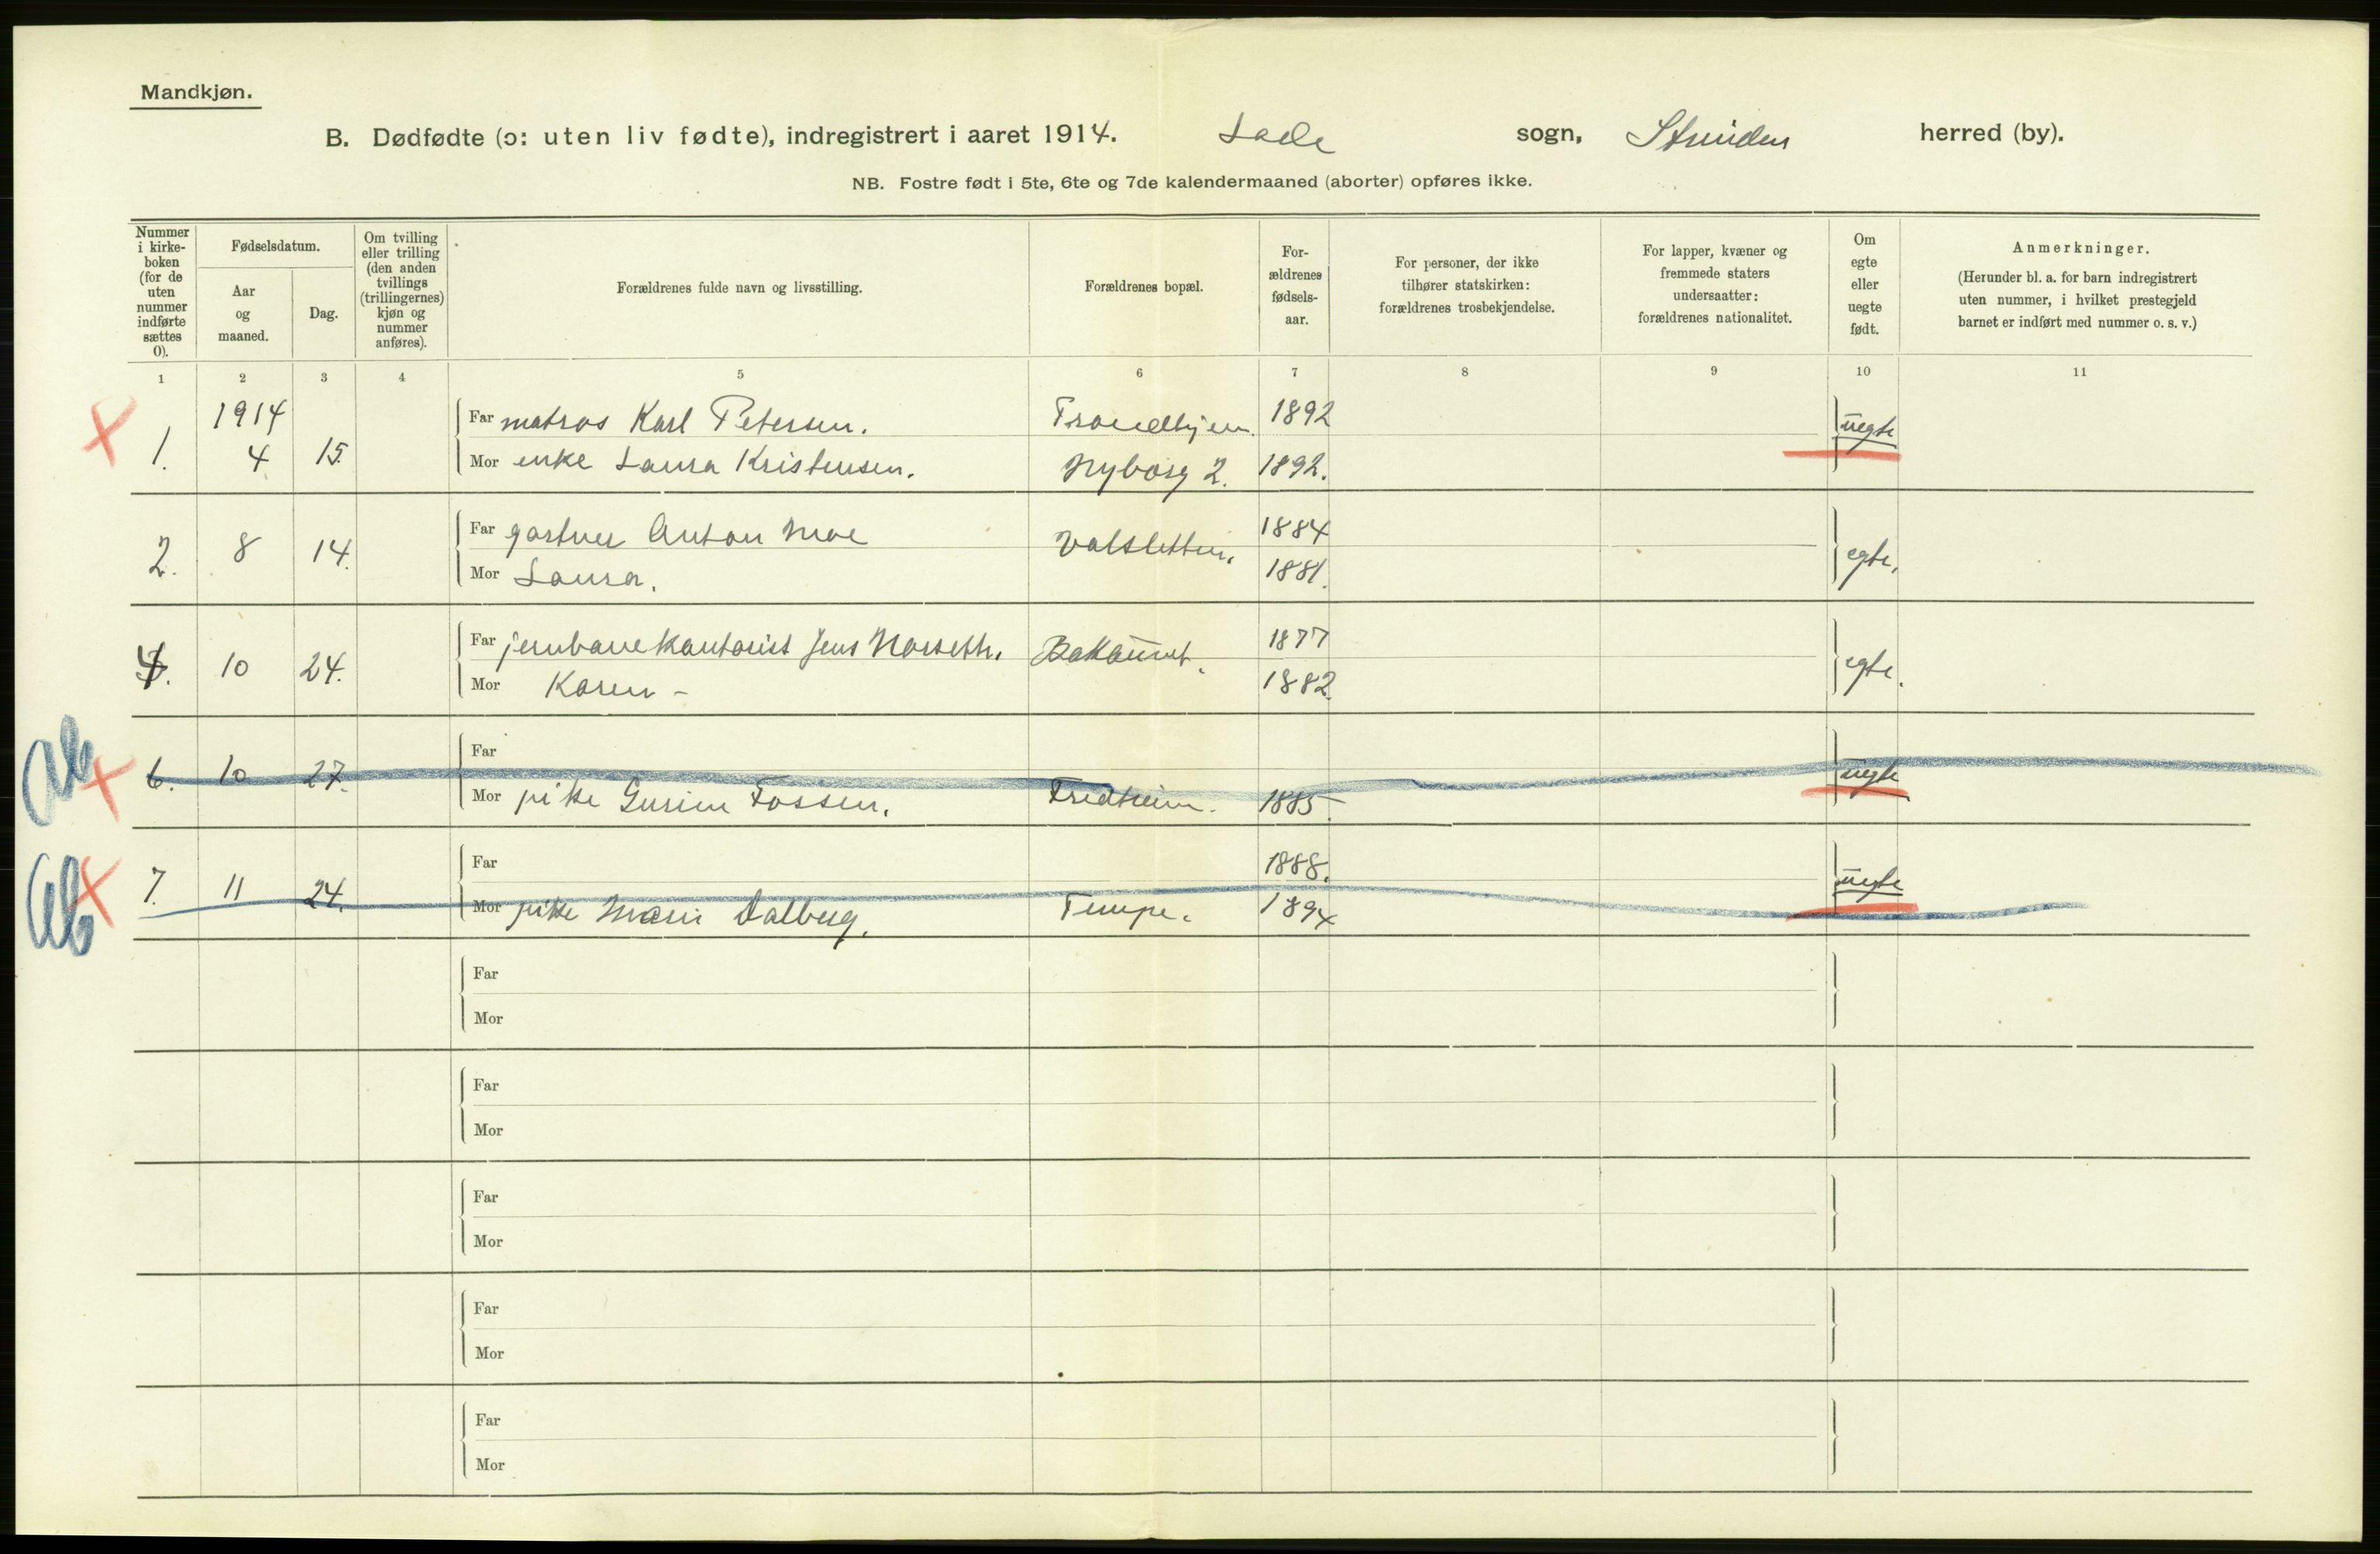 Mandkjøn.
B. Dødfødte (ɔ: uten liv fødte), indregistrert i aaret 1914. Lade sogn, Strinden herred (by).
NB. Fostre født i 5te, 6te og 7de kalendermaaned (aborter) opføres ikke.
Nummer i kirke-boken (for de uten nummer indførte sættes 0).
Fødselsdatum.
Aar og maaned.
Dag.
Om tvilling eller trilling (den anden tvillings (trillingernes) kjøn og nummer anføres).
Forældrenes fulde navn og livsstilling.
Forældrenes bopæl.
For-ældrenes fødsels-aar.
For personer, der ikke tilhører statskirken: forældrenes trosbekjendelse.
For lapper, kvæner og fremmede staters undersaatter: forældrenes nationalitet.
Om egte eller uegte født.
Anmerkninger.
(Herunder bl. a. for barn indregistrert uten nummer, i hvilket prestegjeld barnet er indført med nummer o. s. v.)
1 2 3 4 5 6 7 8 9 10 11
1914 Far matros Karl Petersen. Trondhjem. 1892 uegte
1. 4 15. Mor enke Laura Kristensen. Nyborg 2. 1892.
Far gartner Anton Moe 1884
2. 8 14. Valsletten. egte.
Mor Laura. 1881.
Far jernbanekontorist Jens Norseth. Baklandet. 1877
4. 10 24. Mor Karen - 1882. egte.
Ab Far
6. 10 27. Mor pike Gurine Fossen. Fredheim. 1885. uegte
Ab Far 1888.
7. 11 24. Mor pike Marie Dalberg. Tempe. 1894 uegte
Far
Mor
Far
Mor
Far
Mor
Far
Mor
Far
Mor